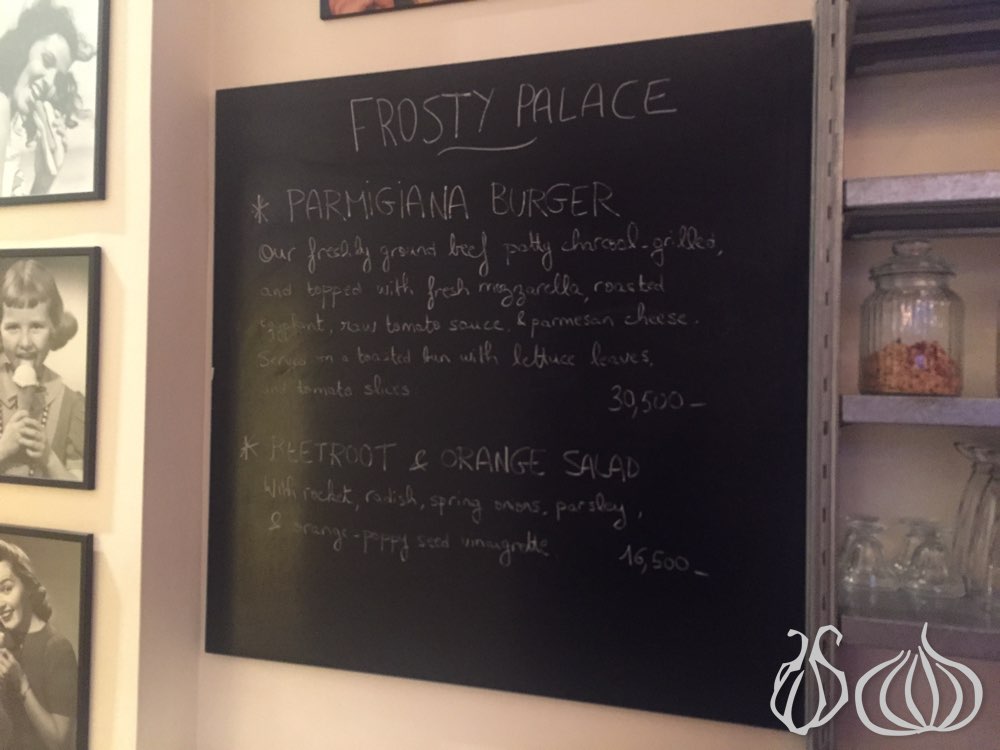 FROSTY PALACE
* PARMIGIANA BURGER
Our freshly ground beef patty charcoal-grilled,
and topped with fresh mozzarella, roasted
eggplant, raw tomato sauce, & parmesan cheese.
Served on a toasted bun with lettuce leaves,
and tomato slices.
30,500-
* BEETROOT & ORANGE SALAD
With rocket, radish, spring onions, parsley,
& orange-poppy seed vinaigrette.
16,500-